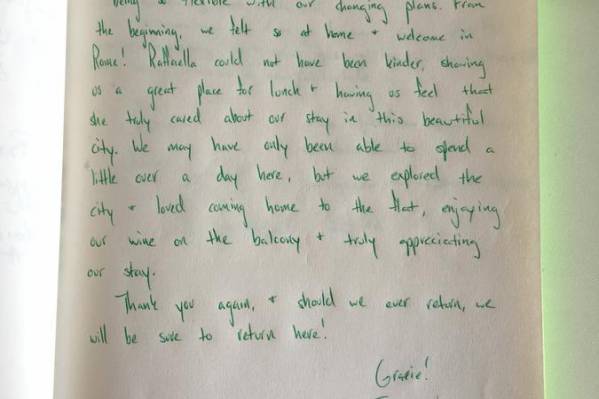 being so flexible with our changing plans. From
the beginning, we felt so at home + welcome in
Rome! Raffaella could not have been kinder, showing
us a great place for lunch + having us feel that
she truly cared about our stay in this beautiful
city. We may have only been able to spend a
little over a day here, but we explored the
city + loved coming home to the flat, enjoying
our wine on the balcony + truly appreciating
our stay.
Thank you again, + should we ever return, we
will be sure to return here!
Grazie!